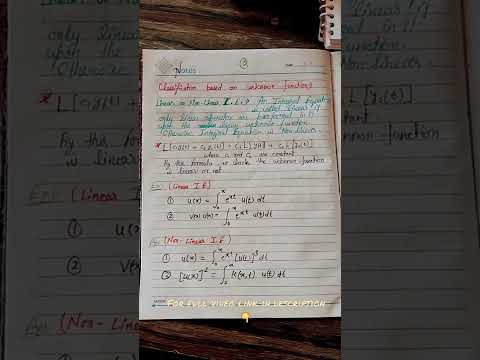 Notes
②
Classification based on unknown function
Linear or Non-Linear I.E → An Integral Equation
is called linear if
only linear operations are performed in it
upon the unknown function
Otherwise Integral Equation is Non-linear
* L[c₁y₁(t) + c₂y₂(t)] = c₁L[y₁(t)] + c₂L[y₂(t)]
where c₁ and c₂ are constant
By this formula we check the unknown function
is linear or not.
Ex: (Linear I.E)
① u(x) = ∫₀ˣ eˣᵗ u(t) dt
② v(x) u(x) = ∫₀ˣ eˣᵗ u(t) dt
(Non-Linear I.E)
① u(x) = ∫₀ˣ eˣᵗ [u(t)]³ dt
② [u(x)]² = ∫₀ˣ k(x,t) u(t) dt
FOR FULL VIDEO LINK IN DESCRIPTION